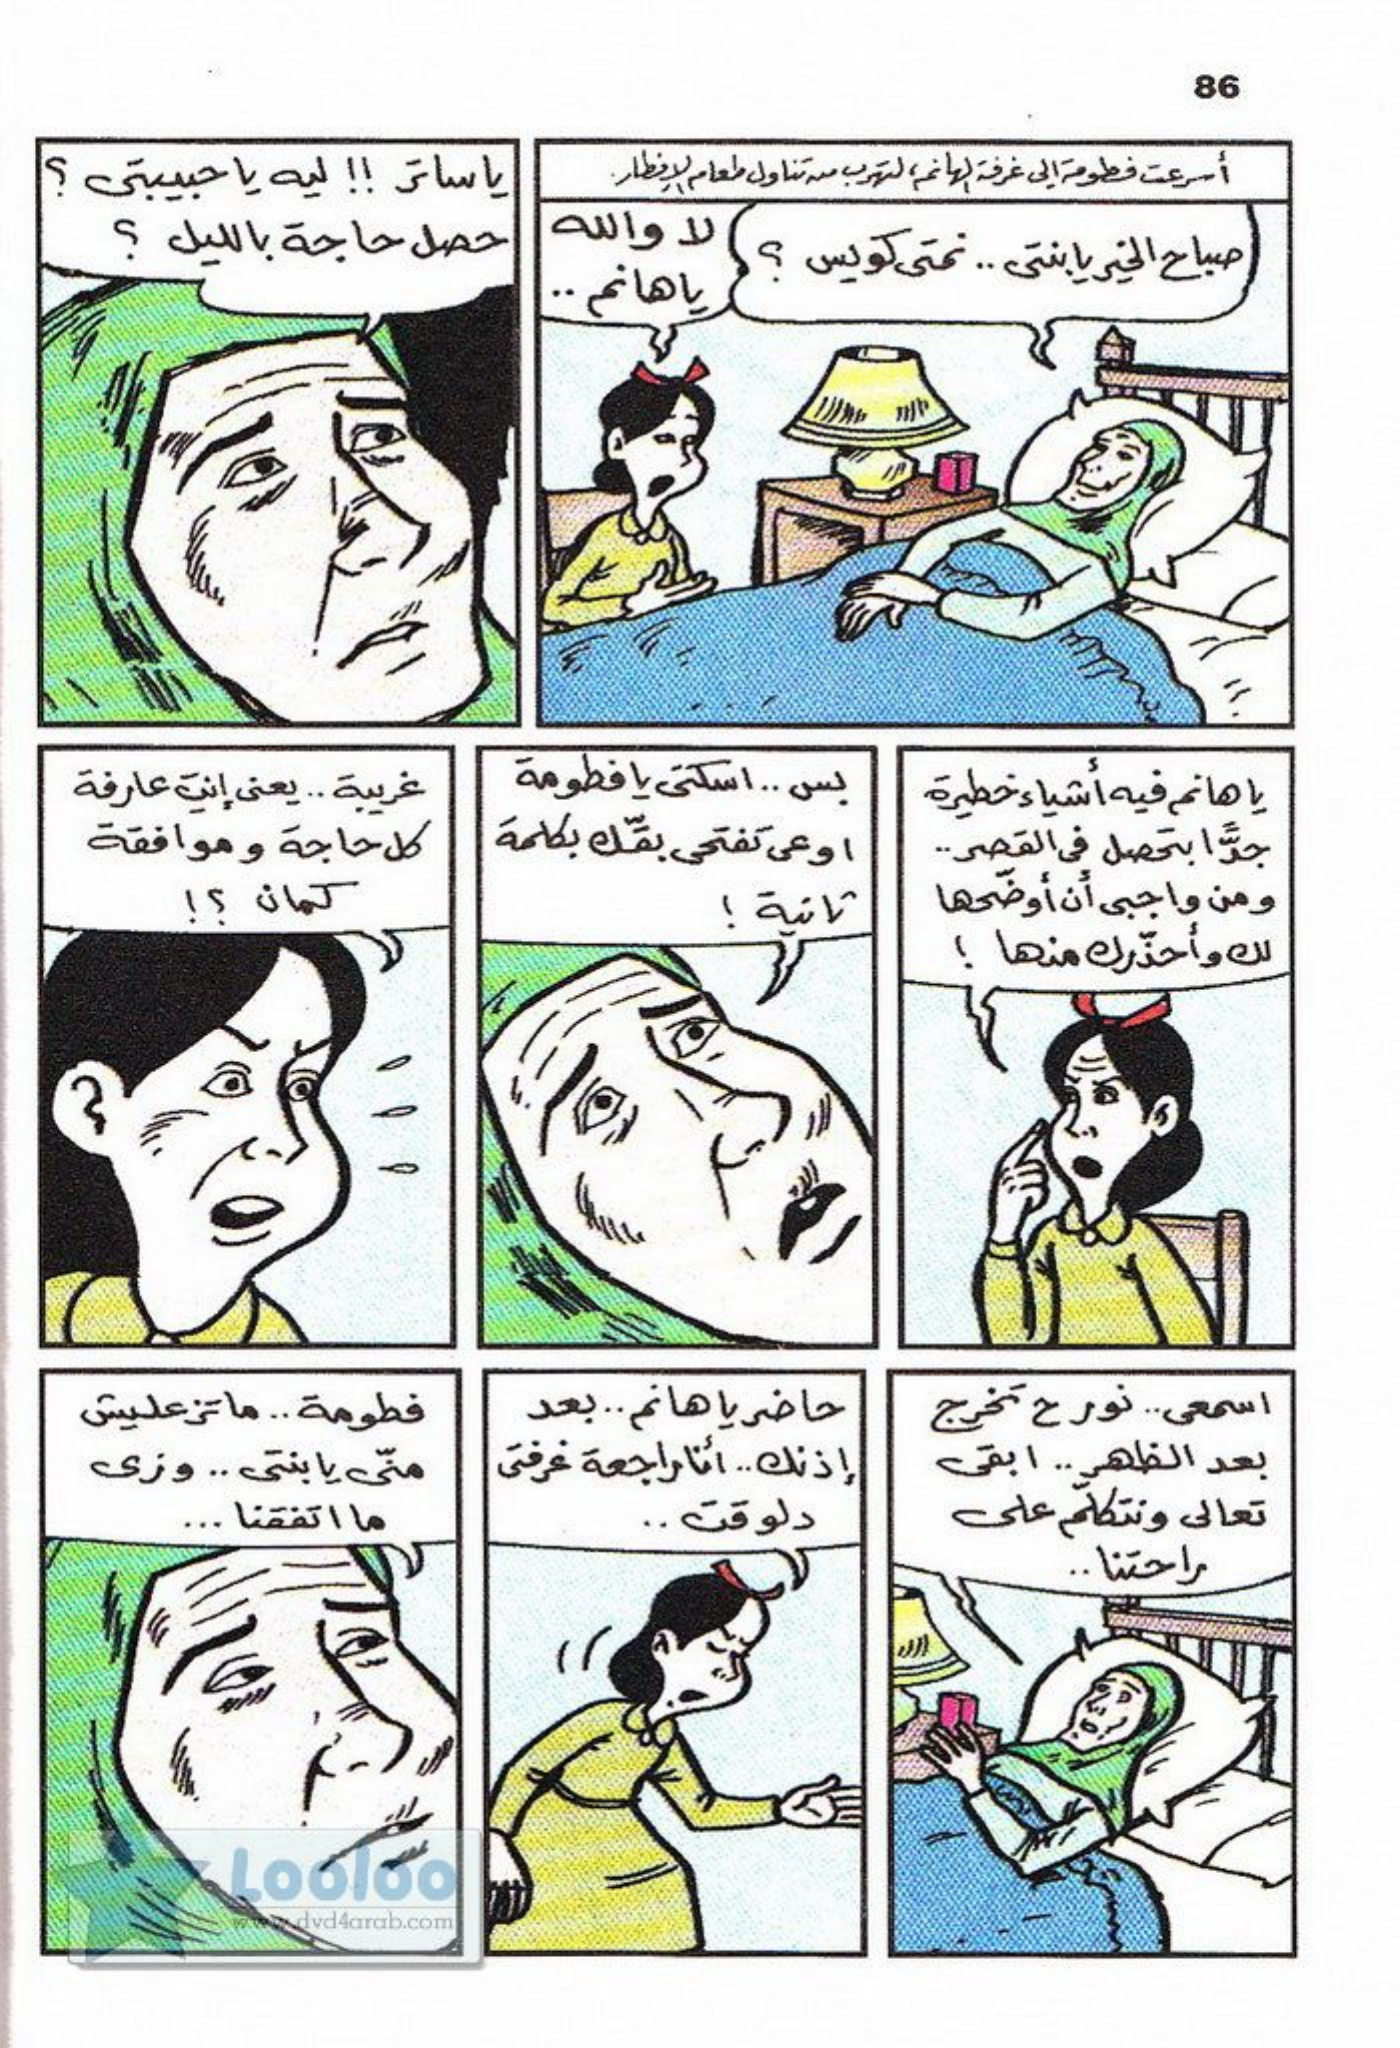 86
أسرعت فطومة إلى غرفة الهانم، لتهرب من تناول طعام الإفطار.
صباح الخير يا بنتى .. نمتى كويس ؟
لا والله
يا هانم ..
يا ساتر !! ليه يا حبيبتى ؟
حصل حاجة بالليل ؟
يا هانم فيه أشياء خطيرة
جدًّا بتحصل فى القصر ..
ومن واجبى أن أوضّحها
لك وأحذّرك منها !
بس .. اسكتى يا فطومة
اوعى تفتحى بقّك بكلمة
ثانية !
غريبة .. يعنى إنتِ عارفة
كل حاجة وموافقة
كمان ؟!
اسمعى .. نور ح تخرج
بعد الظهر .. ابقى
تعالى ونتكلّم على
راحتنا ..
حاضر يا هانم .. بعد
إذنك .. أنا راجعة غرفتى
دلوقت ..
فطومة .. ما تزعليش
منّى يا بنتى .. وزى
ما اتفقنا ...
Looloo
www.dvd4arab.com